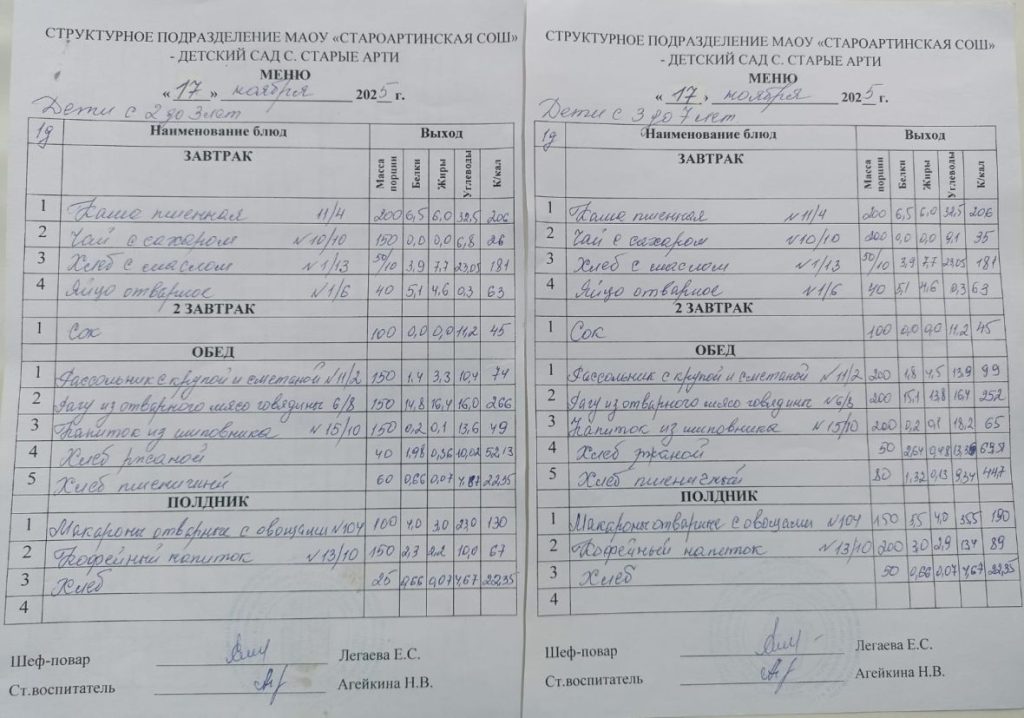 СТРУКТУРНОЕ ПОДРАЗДЕЛЕНИЕ МАОУ «СТАРОАРТИНСКАЯ СОШ»
- ДЕТСКИЙ САД С. СТАРЫЕ АРТИ
МЕНЮ
« 17 » ноября 2025 г.
Дети с 2 до 3 лет
1д Наименование блюд Выход
ЗАВТРАК Масса порции Белки Жиры Углеводы К/кал
1 Каша пшенная 11/4 200 6,5 6,0 32,5 206
2 Чай с сахаром №10/10 150 0,0 0,0 6,8 26
3 Хлеб с маслом №1/13 50/10 3,9 7,7 23,05 181
4 Яйцо отварное №1/6 40 5,1 4,6 0,3 63
2 ЗАВТРАК
1 Сок 100 0,0 0,0 11,2 45
ОБЕД
1 Рассольник с крупой и сметаной №11/2 150 1,4 3,3 10,4 74
2 Рагу из отварного мясо говядины 6/8 150 14,8 16,4 16,0 266
3 Напиток из шиповника №15/10 150 0,2 0,1 13,6 49
4 Хлеб ржаной 40 1,98 0,36 10,02 52,13
5 Хлеб пшеничный 60 0,66 0,07 4,67 22,35
ПОЛДНИК
1 Макароны отварные с овощами №104 100 4,0 3,0 23,0 130
2 Кофейный напиток №13/10 150 2,3 2,2 10,0 67
3 Хлеб 25 0,66 0,07 4,67 22,35
4
Шеф-повар Легаева Е.С.
Ст.воспитатель Агейкина Н.В.
СТРУКТУРНОЕ ПОДРАЗДЕЛЕНИЕ МАОУ «СТАРОАРТИНСКАЯ СОШ»
- ДЕТСКИЙ САД С. СТАРЫЕ АРТИ
МЕНЮ
« 17 » ноября 2025 г.
Дети с 3 до 7 лет
1д Наименование блюд Выход
ЗАВТРАК Масса порции Белки Жиры Углеводы К/кал
1 Каша пшенная №11/4 200 6,5 6,0 32,5 206
2 Чай с сахаром №10/10 200 0,0 0,0 9,1 35
3 Хлеб с маслом №1/13 50/10 3,9 7,7 23,05 181
4 Яйцо отварное №1/6 40 5,1 4,6 0,3 63
2 ЗАВТРАК
1 Сок 100 0,0 0,0 11,2 45
ОБЕД
1 Рассольник с крупой и сметаной №11/2 200 1,8 4,5 13,9 99
2 Рагу из отварного мясо говядины №6/8 200 15,1 13,8 16,4 252
3 Напиток из шиповника №15/10 200 0,2 0,1 18,2 65
4 Хлеб ржаной 50 2,64 0,48 13,36
5 Хлеб пшеничный 80 1,32 0,13 9,34 44,7
ПОЛДНИК
1 Макароны отварные с овощами №104 150 5,5 4,0 35,5 190
2 Кофейный напиток №13/10 200 3,0 2,9 13,4 89
3 Хлеб 50 0,66 0,07 4,67 22,35
4
Шеф-повар Легаева Е.С.
Ст.воспитатель Агейкина Н.В.